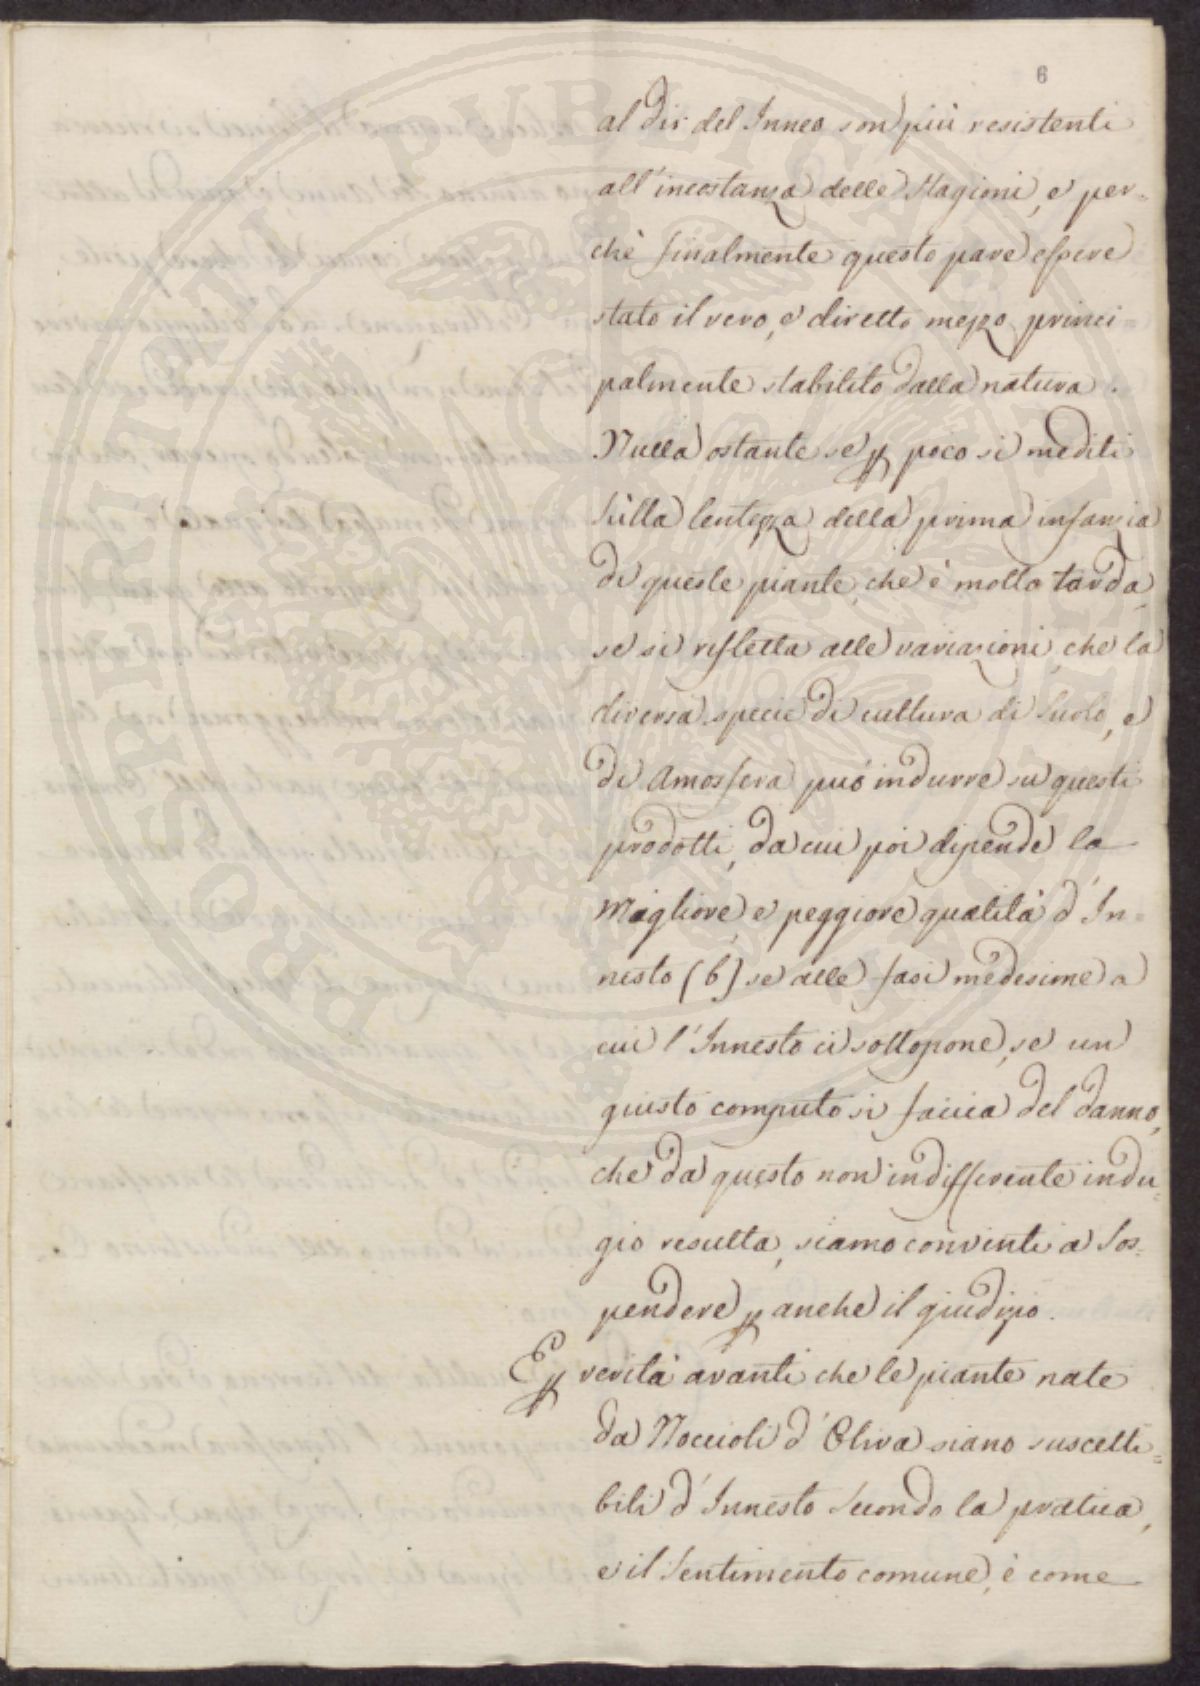 6
al dir del Inneo son più resistenti
all'incostanza delle Stagioni, e per-
chè finalmente questo pare essere
stato il vero, e diretto mezzo princi=
palmente stabilito dalla natura.
Nulla ostante se p poco si mediti
sulla lentezza della prima infanzia
di queste piante, che è molto tarda,
se si rifletta alle variazioni, che la
diversa specie di cultura di suolo, e
di Amosfera può indurre su questi
prodotti, da cui poi dipende la
migliore, e peggiore qualità d'In=
nesto (b) se alle fasi medesime a
cui l'Innesto ci sottopone, se un
giusto computo si faccia del danno,
che da questo non indifferente indu=
gio resulta, siamo convinti a sos=
pendere p anche il giudizio.
E p verità avanti che le piante nate
da Noccioli d'Oliva siano suscetti=
bili d'Innesto secondo la pratica,
e il sentimento comune, è come
PROSPERITATI PVBLICAE